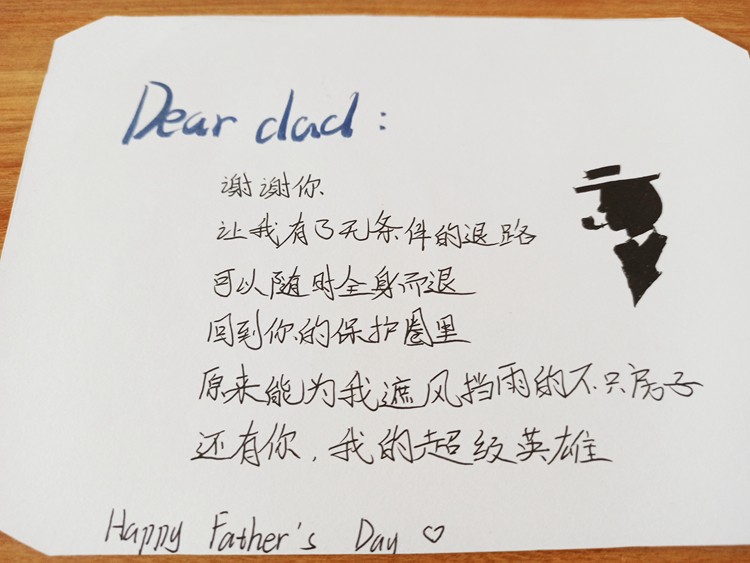 Dear dad:
谢谢你
让我有了无条件的退路
可以随时全身而退
回到你的保护圈里
原来能为我遮风挡雨的不只房子
还有你，我的超级英雄
Happy Father's Day ♡